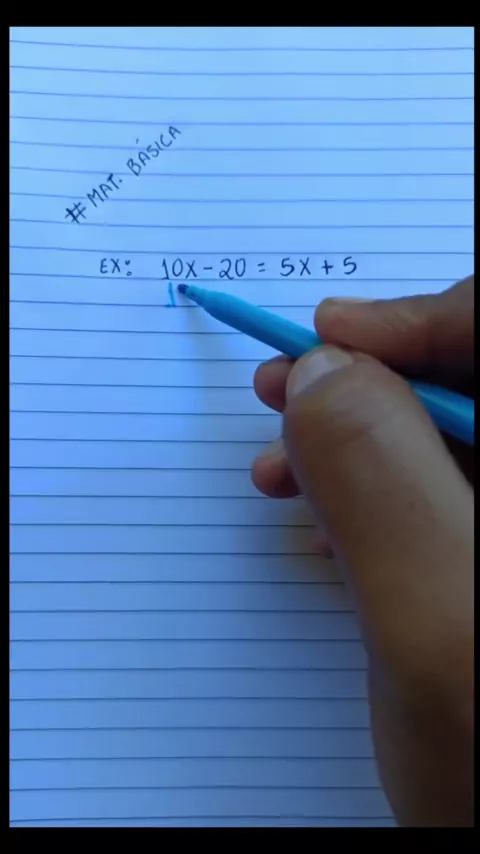 # MAT. BÁSICA
EX: 10X - 20 = 5X + 5
1